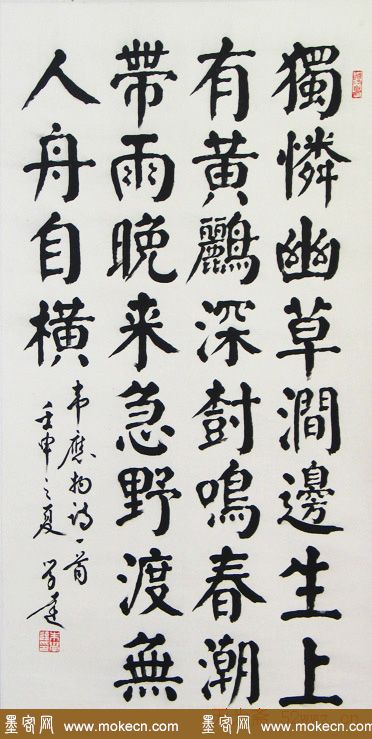 獨憐幽草澗邊生上
有黃鸝深樹鳴春潮
帶雨晚来急野渡無
人舟自橫
韦應物诗一首
壬申之夏
墨客网 www.mokecn.com 墨客网 www.mokecn.com